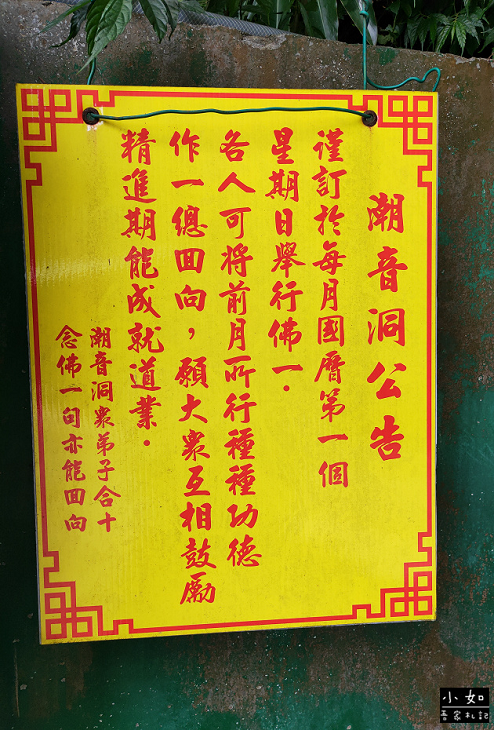 潮音洞公告
謹訂於每月國曆第一個
星期日舉行佛一．
各人可將前月所行種種功德
作一總回向，願大衆互相鼓勵
精進期能成就道業．
潮音洞衆弟子合十
念佛一句亦能回向
小如
吾家札記